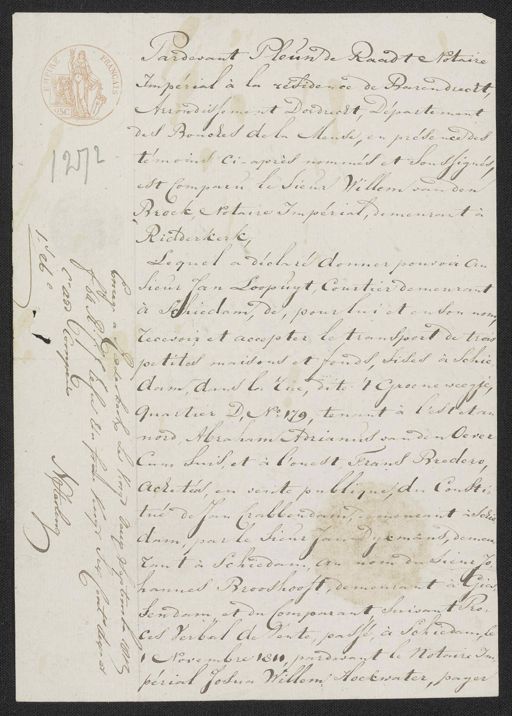 EMPIRE FRANÇAIS
75C
1272
Pardevant Pleun de Raadt Notaire
Impérial à la résidence de Barendrecht
Arrondissement Dordrecht, Département
des Bouches de la Meuse, en présence des
témoins ci-après nommés et soussignés,
est Comparu le Sieur Willem van den
Broek, Notaire Impérial, demeurant à
Ridderkerk,
Lequel a déclaré donner pouvoir au
Sieur Jan Loopuyt, Courtier demeurant
à Schiedam, de, pour lui et en son nom,
recevoir et accepter le transport de trois
petites maisons et fonds, sises à Schie
dam, dans la Rue, dit 't Groene weegje,
Quartier D, No. 179, tenant à l'est et au
nord, Abraham Adrianus van den Oever
Cum Suis, et à l'ouest, Frans Bredero,
achetés, en vente publique, du Consti
tué de Jan Crabbendam, demeurant à Schie
dam, par le Sieur Jan demeu
rant à Schiedam, au nom du Sieur Jo
hannes Brooshooft, demeurant à Gies
sendam, et du Comparant suivant Pro
ces Verbal de Vente, passé, à Schiedam, le
1 Novembre 1811, pardevant le Notaire Im
périal Josua Willem Hoekwater, payer